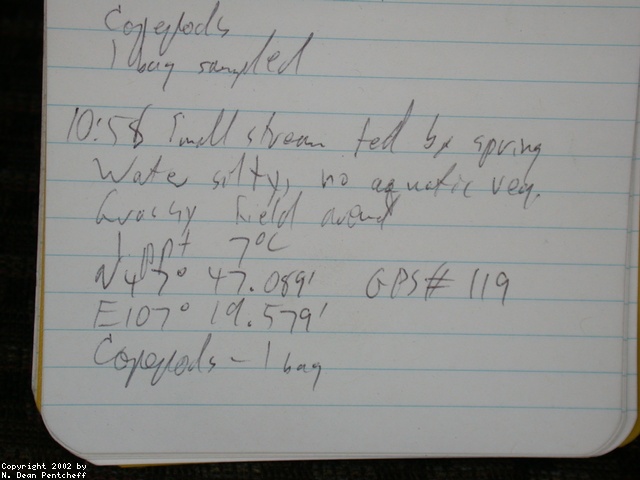 Copepods
1 bag sampled
10:58 Small stream fed by spring
Water silty, no aquatic veg.
Grassy field around
1 ppt 7°C
N47° 47.089' GPS# 119
E107° 19.579'
Copepods - 1 bag
Copyright 2002 by
N. Dean Pentcheff